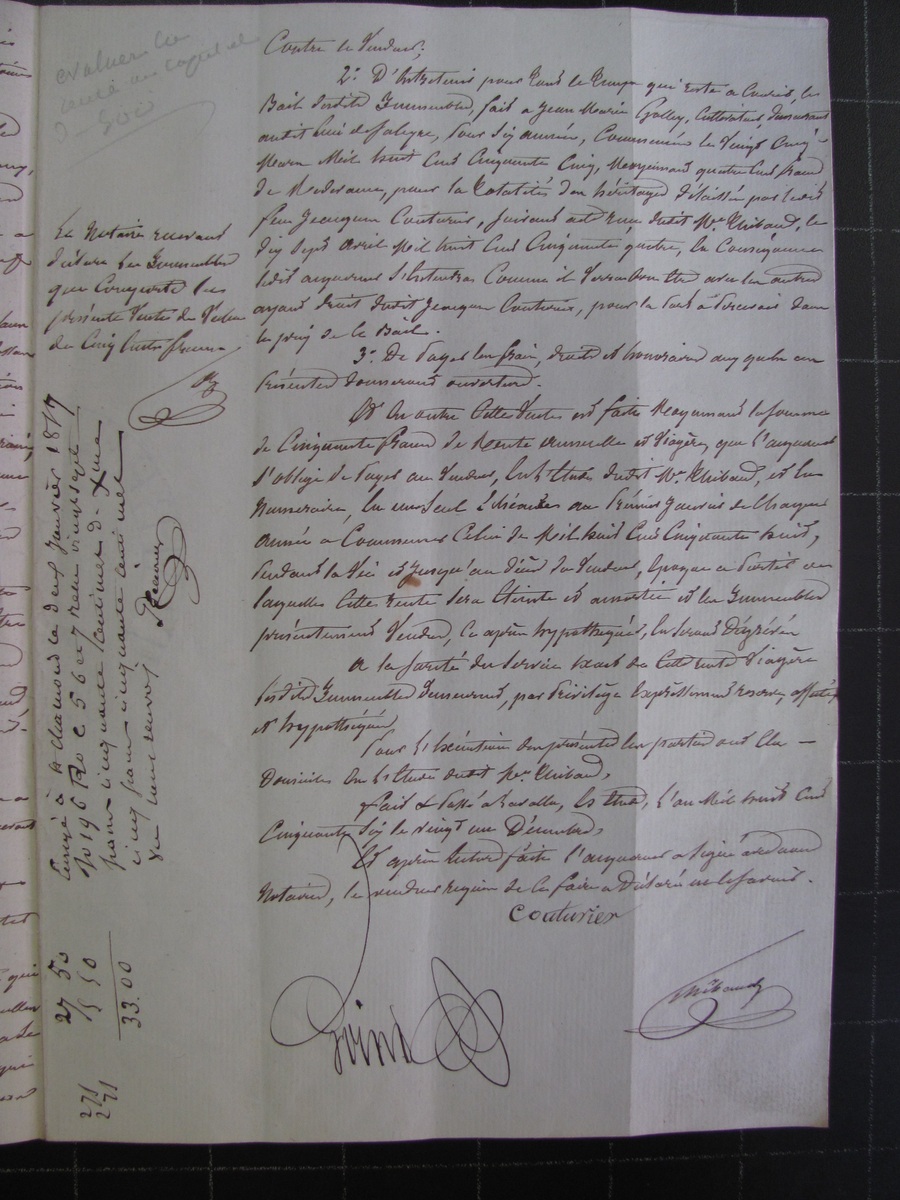 évaluer le
Contre le Vendeur;
2°. D'Entretenir pour tout le temps qui reste à courir, le
Bail desdits Immeubles, fait à Jean Marie Cultivateur, demeurant
audit lieu de pour six années, Commencées le Vingt Cinq
Mars Mil huit Cent Cinquante Cinq, Moyennant quatre Cent francs
de Redevance, pour la totalité d'un héritage délaissé par ledit
feu Jacques Couturier, suivant acte reçu dudit Me. Thibaud, le
dix Sept avril Mil huit Cent Cinquante quatre, En Conséquence
ledit acquéreur S'Entendra Comme il Verra bon être avec les autres
ayant droit dudit Jacques Couturier, pour la part à percevoir dans
le prix de ce Bail.
3°. De Payer les frais, droits et honoraires auxquels ces
Présentes donneront ouverture.
Et En outre Cette Vente est faite Moyennant la somme
de Cinquante francs de Rente annuelle et Viagère, que l'acquéreur
S'oblige de Payer au Vendeur, En l'Etude dudit Me. Thibaud, et En
Numéraire, En un Seul Terme au Premier Janvier de Chaque
année à Commencer Celui de Mil huit Cent Cinquante huit,
Pendant la Vie et Jusqu'au décès du Vendeur, Epoque à Partir de
laquelle Cette rente Sera Eteinte et amortie et les Immeubles
présentement Vendus, Ci après hypothéqués, En Seront Dégrévés
A la sureté du Service exact de Cette rente Viagère
lesdits Immeubles demeurent, par Privilège Expressément reservé, affectés
et hypothéqués
Pour l'Exécution des présentes les parties ont Elu
Domicile En l'Etude dudit Me. Thibaud,
fait & Passé à Etude, l'an Mil huit Cent
Cinquante Six le vingt un Décembre,
Et après lecture faite l'acquéreur a Signé avec nous
Notaires, le vendeur requis de le faire a Déclaré ne le savoir.
Couturier
Thibaud
Le Notaire recevant
déclare les Immeubles
que Comporte la
présente Vente de Valeur
de Cinq Cents francs
Enregé à St Chamond le deux Janvier 1857
fo 196 Ro C 5 6 et 7 reçu vingt sept
francs cinquante centimes dixme
cinq francs cinquante centimes
vu un renvoi
27 50
5 50
33.00
271
271